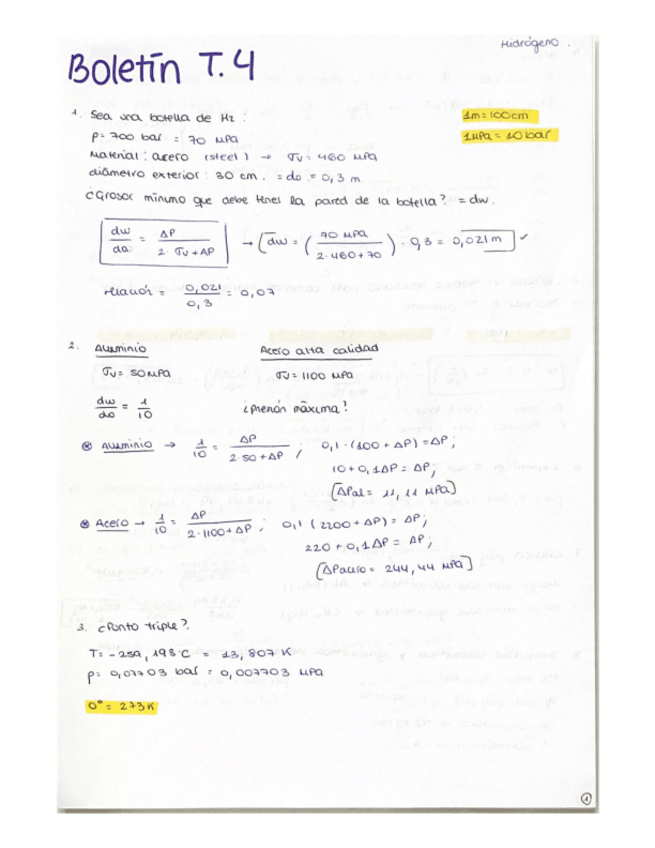 Hidrógeno.
Boletín T.4
1. Sea una botella de H2:
1m = 100cm
p = 700 bar = 70 MPa
1MPa = 10 bar
Material: acero (steel) → σv = 460 MPa
diámetro exterior: 30 cm. = do = 0,3 m
¿Grosor mínimo que debe tener la pared de la botella? = dw.
dw/do = ΔP / (2·σv + ΔP) → dw = (70 MPa / (2·460+70)) · 0,3 = 0,021 m ✓
relación = 0,021/0,3 = 0,07
2. Aluminio Acero alta calidad
σv = 50MPa σv = 1100 MPa
dw/do = 1/10 ¿presión máxima?
⊗ Aluminio → 1/10 = ΔP / (2·50 + ΔP) ; 0,1·(100 + ΔP) = ΔP;
10 + 0,1ΔP = ΔP;
[ΔPal = 11,11 MPa]
⊗ Acero → 1/10 = ΔP / (2·1100 + ΔP) ; 0,1 (2200 + ΔP) = ΔP;
220 + 0,1ΔP = ΔP;
[ΔPacero = 244,44 MPa]
3. ¿Punto triple?
T = -259,193°C = 13,807 K
p = 0,07703 bar = 0,007703 MPa
0° = 273K
1